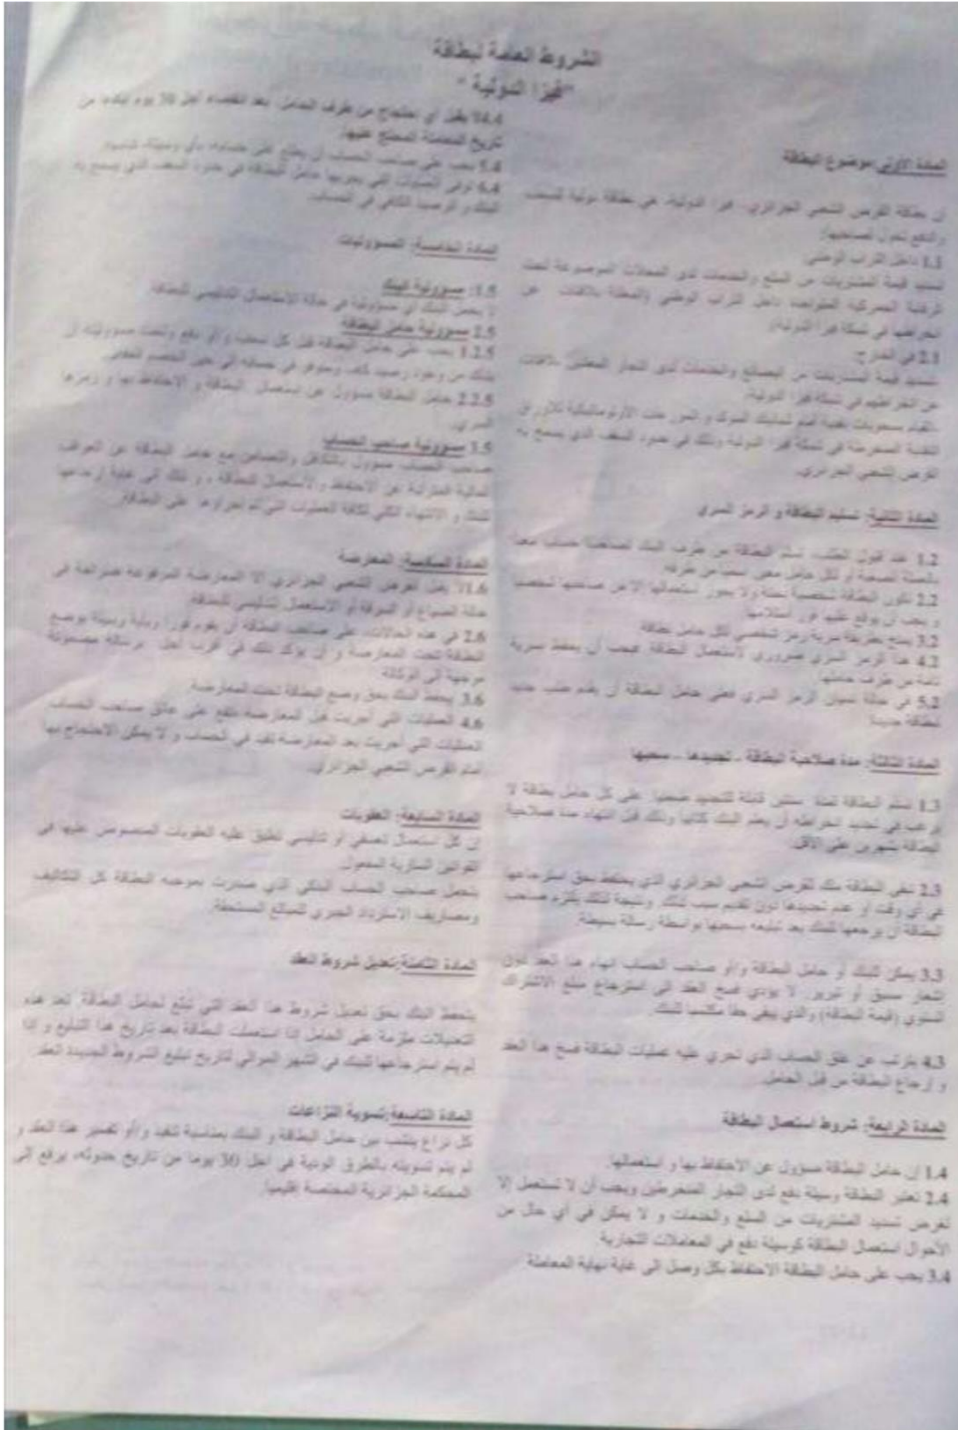 الشروط العامة لبطاقة
"فيزا الدولية"
المادة الأولى: موضوع البطاقة
إن بطاقة القرض الشعبي الجزائري، فيزا الدولية، هي بطاقة دولية للسحب
والدفع تخول لصاحبها:
1.1 داخل التراب الوطني
تسديد قيمة المشتريات من السلع والخدمات لدى المحلات الموضوعة تحت
الرقابة الجمركية المتواجد داخل التراب الوطني والمعلنة عن
انخراطهم في شبكة فيزا الدولية
2.1 في الخارج:
-تسديد قيمة المشتريات من البضائع والخدمات لدى التجار المعلنين
عن انخراطهم في شبكة فيزا الدولية.
-القيام بسحوبات نقدية أمام شبابيك البنوك و الموزعات الأوتوماتيكية للأوراق
النقدية المنخرطة في شبكة فيزا الدولية وذلك في حدود السقف الذي يسمح به
القرض الشعبي الجزائري.
المادة الثانية: تسليم البطاقة و الرمز السري
1.2 عند قبول الطلب، تسلم البطاقة من طرف البنك لصاحب حساب
بالعملة الصعبة أو لكل حامل معين من طرفه.
2.2 تكون البطاقة شخصية بحتة ولا يجوز استعمالها إلا من صاحبها شخصيا
و يجب أن يوقع عليها فور استلامها.
3.2 يمنح بطريقة سرية رمز شخصي لكل حامل بطاقة
4.2 هذا الرمز السري ضروري لاستعمال البطاقة فيجب أن يحفظ بسرية
تامة من طرف حاملها.
5.2 في حالة نسيان الرمز السري فعلى حامل البطاقة أن يقدم طلب
لبطاقة جديدة
المادة الثالثة: مدة صلاحية البطاقة - تجديدها – سحبها
1.3 تسلم البطاقة لمدة سنتين قابلة للتجديد ضمنيا. على كل حامل بطاقة لا
يرغب في تجديد انخراطه أن يعلم البنك كتابيا وذلك قبل انتهاء مدة صلاحية
البطاقة بشهرين على الأقل.
2.3 تبقى البطاقة ملك للقرض الشعبي الجزائري الذي يحتفظ بحق استرجاعها
في أي وقت أو عدم تجديدها دون تقديم سبب لذلك. ونتيجة لذلك يلتزم صاحب
البطاقة أن يرجعها للبنك بعد تبليغه بسحبها بواسطة رسالة بسيطة.
3.3 يمكن للبنك أو حامل البطاقة و/أو صاحب الحساب انهاء هذا العقد دون
اشعار مسبق أو تبرير. لا يؤدي فسخ العقد الى استرجاع مبلغ الاشتراك
السنوي (قيمة البطاقة) والذي يبقى حقا مكتسبا للبنك.
4.3 يترتب عن غلق الحساب الذي تجري عليه عمليات البطاقة فسخ هذا العقد
و إرجاع البطاقة من قبل الحامل.
المادة الرابعة: شروط استعمال البطاقة
1.4 إن حامل البطاقة مسؤول عن الاحتفاظ بها و استعمالها.
2.4 تعتبر البطاقة وسيلة دفع لدى التجار المنخرطين ويجب أن لا تستعمل إلا
لغرض تسديد المشتريات من السلع والخدمات و لا يمكن في أي حال من
الأحوال استعمال البطاقة كوسيلة دفع في المعاملات التجارية
3.4 يجب على حامل البطاقة الاحتفاظ بكل وصل الى غاية نهاية المعاملة
يقبل أي احتجاج من طرف الحامل، بعد انقضاء أجل 30 يوم ابتداء من
تاريخ العملية المحتج عليها.
5.4 يجب على صاحب الحساب أن يطلع على حسابه بأي وسيلة
6.4 توفى العمليات التي يجريها حامل البطاقة في حدود السقف الذي يسمح به
البنك و الرصيد الكافي في الحساب.
المادة الخامسة: المسؤوليات
1.5: مسؤولية البنك
لا يتحمل البنك أي مسؤولية في حالة الاستعمال التدليسي للبطاقة
2.5 مسؤولية حامل البطاقة
1.2.5 يجب على حامل البطاقة قبل كل سحب و/أو دفع وتحت مسؤوليته أن
يتأكد من وجود رصيد كاف ومتوفر في حسابه الى حين الخصم الفعلي.
2.2.5 حامل البطاقة مسؤول عن استعمال البطاقة و الاحتفاظ بها و رمزها
السري.
3.5 مسؤولية صاحب الحساب
صاحب الحساب مسؤول بالتكافل والتضامن مع حامل البطاقة عن العواقب
المالية المترتبة عن الاحتفاظ و لاستعمال البطاقة ، و ذلك الى غاية إرجاعها
للبنك و الانتهاء الكلي لكافة العمليات التي تم إجراؤها على البطاقة.
المادة السادسة: المعارضة
1.6 لا يقبل القرض الشعبي الجزائري الا المعارضة المرفوعة صراحة في
حالة الضياع أو السرقة أو الاستعمال التدليسي للبطاقة.
2.6 في هذه الحالات، على صاحب البطاقة أن يقوم فورا وبأية وسيلة بوضع
البطاقة تحت المعارضة و أن يؤكد ذلك في أقرب أجل برسالة مضمونة
موجهة الى الوكالة
3.6 يحتفظ البنك بحق وضع البطاقة تحت المعارضة.
4.6 العمليات التي أجريت قبل المعارضة تقع على عاتق صاحب الحساب
العمليات التي أجريت بعد المعارضة تقيد في الحساب و لا يمكن الاحتجاج بها
أمام القرض الشعبي الجزائري.
المادة السابعة: العقوبات
إن كل استعمال تعسفي أو تدليسي تطبق عليه العقوبات المنصوص عليها في
القوانين السارية المفعول.
يتحمل صاحب الحساب البنكي الذي صدرت بموجبه البطاقة كل التكاليف
ومصاريف الاسترداد الجبري للمبالغ المستحقة.
المادة الثامنة: تعديل شروط العقد
يحتفظ البنك بحق تعديل شروط هذا العقد التي تبلغ لحامل البطاقة. تعد هذه
التعديلات ملزمة على الحامل إذا استعملت البطاقة بعد تاريخ هذا التبليغ و إذا
لم يتم استرجاعها للبنك في الشهر الموالي لتاريخ تبليغ الشروط الجديدة للعقد.
المادة التاسعة: تسوية النزاعات
كل نزاع ينشب بين حامل البطاقة و البنك بمناسبة تنفيذ و/أو تفسير هذا العقد و
لم يتم تسويته بالطرق الودية في أجل 30 يوما من تاريخ حدوثه، يرفع إلى
المحكمة الجزائرية المختصة إقليميا.